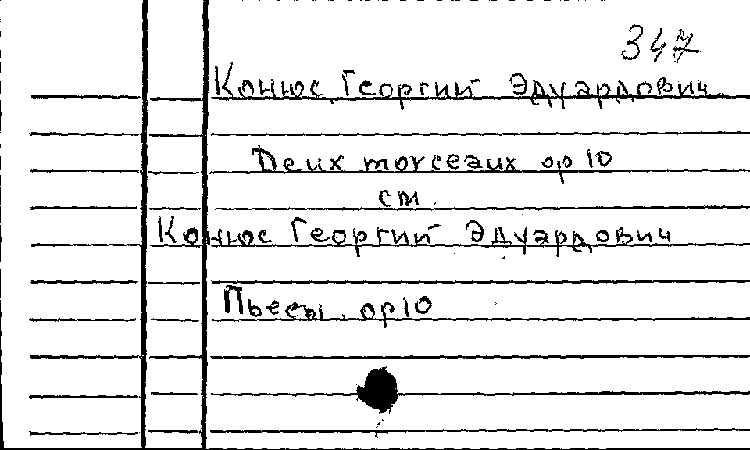 347
Конюс Георгий Эдуардович.
Deux morceaux op 10
см.
Конюс Георгий Эдуардович
Пьесы. op 10